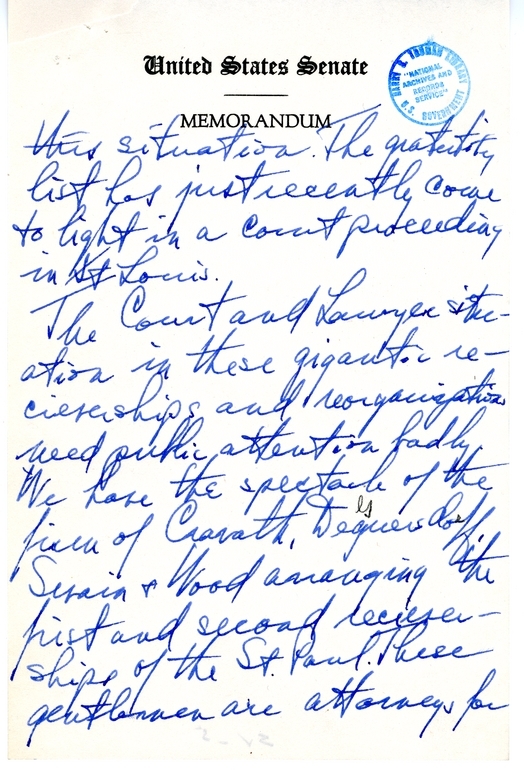 United States Senate
MEMORANDUM
HARRY S. TRUMAN LIBRARY
"NATIONAL
ARCHIVES AND
RECORDS
SERVICE"
U.S. GOVERNMENT
this situation. The gratuity
list has just recently come
to light in a court proceeding
in St Louis.
The Court and Lawyer situ-
ation in these gigantic re-
cieverships and reorganizations
need public attention badly.
We have the spectacle of the
firm of Cravath, Deguersdorff,
Swain & Wood arranging the
first and second reciever-
ships of the St. Paul. These
gentlemen are attorneys for